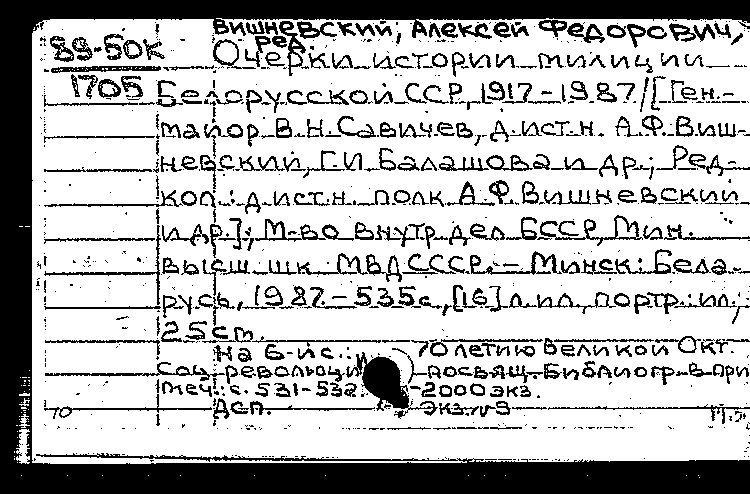 Вишневский, Алексей Федорович,
ред.
89-50К
Очерки истории милиции
1705
Белорусской ССР, 1917-1987/[Ген.-
майор В.Н. Савичев, д.ист.н. А.Ф. Виш-
невский, Г.И. Балашова и др.; Ред-
кол.: д.ист.н. полк. А.Ф. Вишневский
и др.]; М-во внутр. дел БССР, Мин.
высш. шк. МВД СССР. – Минск: Бела-
русь, 1987 – 535с., [16] л. ил., портр.: ил.;
25 см.
На 6-й с.: 70 летию Великой Окт.
соц. революции посвящ. Библиогр. в при
меч.: с. 531-532. – 2000 экз.
ДСП. Экз. № 9
10